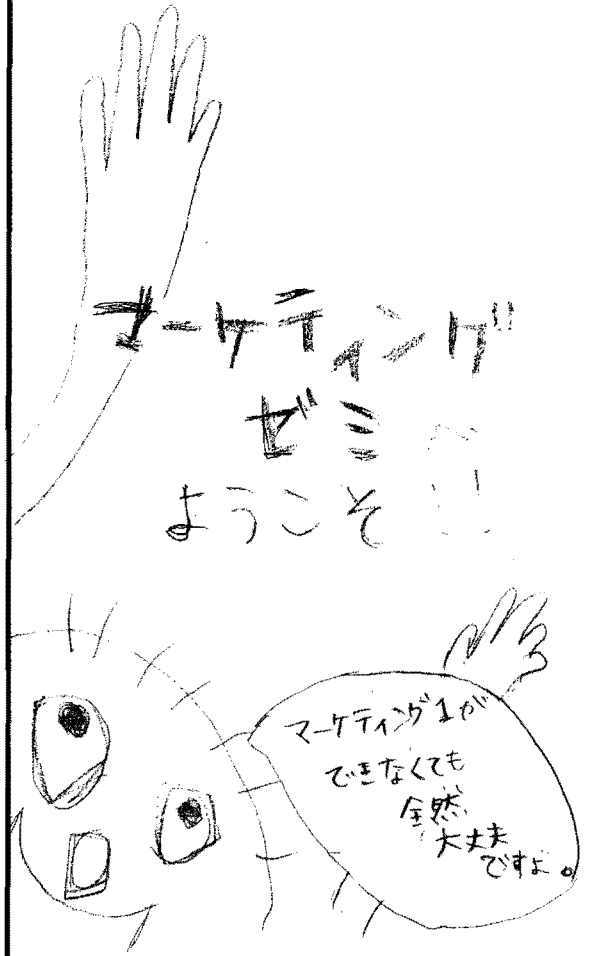 マーケティング
ゼミへ
ようこそ!!
マーケティング1が
できなくても
全然
大丈夫
ですよ。